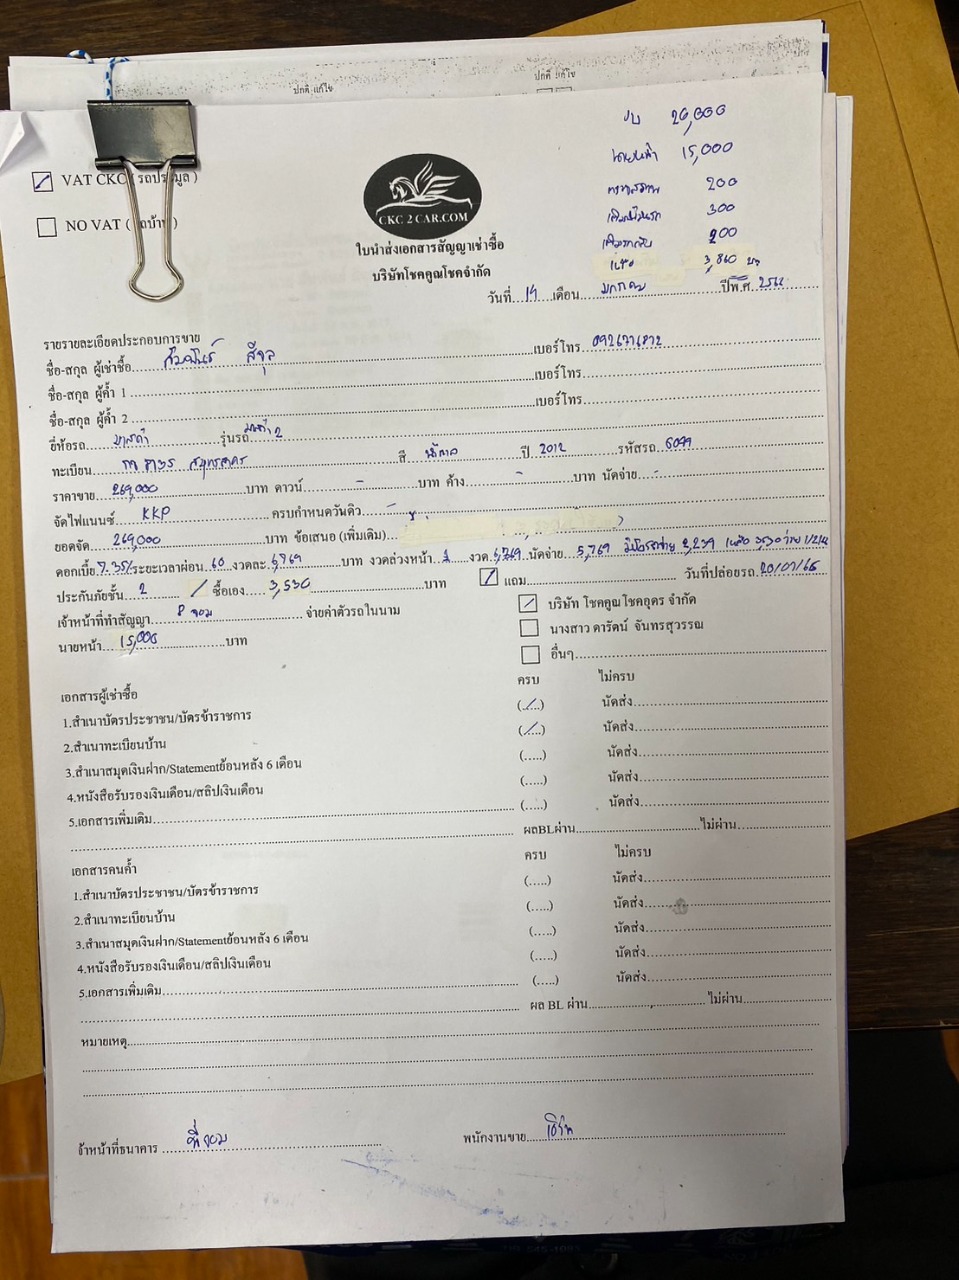 ปกติ แก้ไข
ปกติ แก้ไข
20,000
นายหน้า 15,000
200
300
200
3,860
VAT CKC ( รถประมูล )
NO VAT (
CKC 2 CAR.COM
ใบนำส่งเอกสารสัญญาเช่าซื้อ
บริษัทโชคคูณโชคจำกัด
วันที่ 19 เดือน มกราคม ปีพ.ศ.
รายรายละเอียดประกอบการขาย
ชื่อ-สกุล ผู้เช่าซื้อ เบอร์โทร
ชื่อ-สกุล ผู้ค้ำ 1 เบอร์โทร
ชื่อ-สกุล ผู้ค้ำ 2 เบอร์โทร
ยี่ห้อรถ มาสด้า รุ่นรถ มาสด้า 2
ทะเบียน สมุทรสาคร สี ปี 2012 รหัสรถ 6099
ราคาขาย 269,000 บาท ดาวน์ - บาท ค้าง - บาท นัดจ่าย -
จัดไฟแนนซ์ KKP ครบกำหนดวันดิว -
ยอดจัด 269,000 บาท ข้อเสนอ (เพิ่มเติม)
ดอกเบี้ย 7.35% ระยะเวลาผ่อน 60 งวดละ บาท งวดล่วงหน้า 1 งวด นัดจ่าย 5,769 2,239
ประกันภัยชั้น 2 / ซื้อเอง 3,530 บาท / แถม วันที่ปล่อยรถ 20/01/66
เจ้าหน้าที่ทำสัญญา จ่ายค่าตัวรถในนาม / บริษัท โชคคูณโชคอุดร จำกัด
นางสาว ดารัตน์ จันทรสุวรรณ
นายหน้า 15,000 บาท
อื่นๆ
เอกสารผู้เช่าซื้อ ครบ ไม่ครบ
1.สำเนาบัตรประชาชน/บัตรข้าราชการ (../..) นัดส่ง
2.สำเนาทะเบียนบ้าน (../..) นัดส่ง
3.สำเนาสมุดเงินฝาก/Statementย้อนหลัง 6 เดือน (.....) นัดส่ง
4.หนังสือรับรองเงินเดือน/สลิปเงินเดือน (.....) นัดส่ง
5.เอกสารเพิ่มเติม (.....) นัดส่ง
ผลBLผ่าน ไม่ผ่าน
เอกสารคนค้ำ ครบ ไม่ครบ
1.สำเนาบัตรประชาชน/บัตรข้าราชการ (.....) นัดส่ง
2.สำเนาทะเบียนบ้าน (.....) นัดส่ง
3.สำเนาสมุดเงินฝาก/Statementย้อนหลัง 6 เดือน (.....) นัดส่ง
4.หนังสือรับรองเงินเดือน/สลิปเงินเดือน (.....) นัดส่ง
5.เอกสารเพิ่มเติม (.....) นัดส่ง
ผล BL ผ่าน ไม่ผ่าน
หมายเหตุ
จ้าหน้าที่ธนาคาร พนักงานขาย